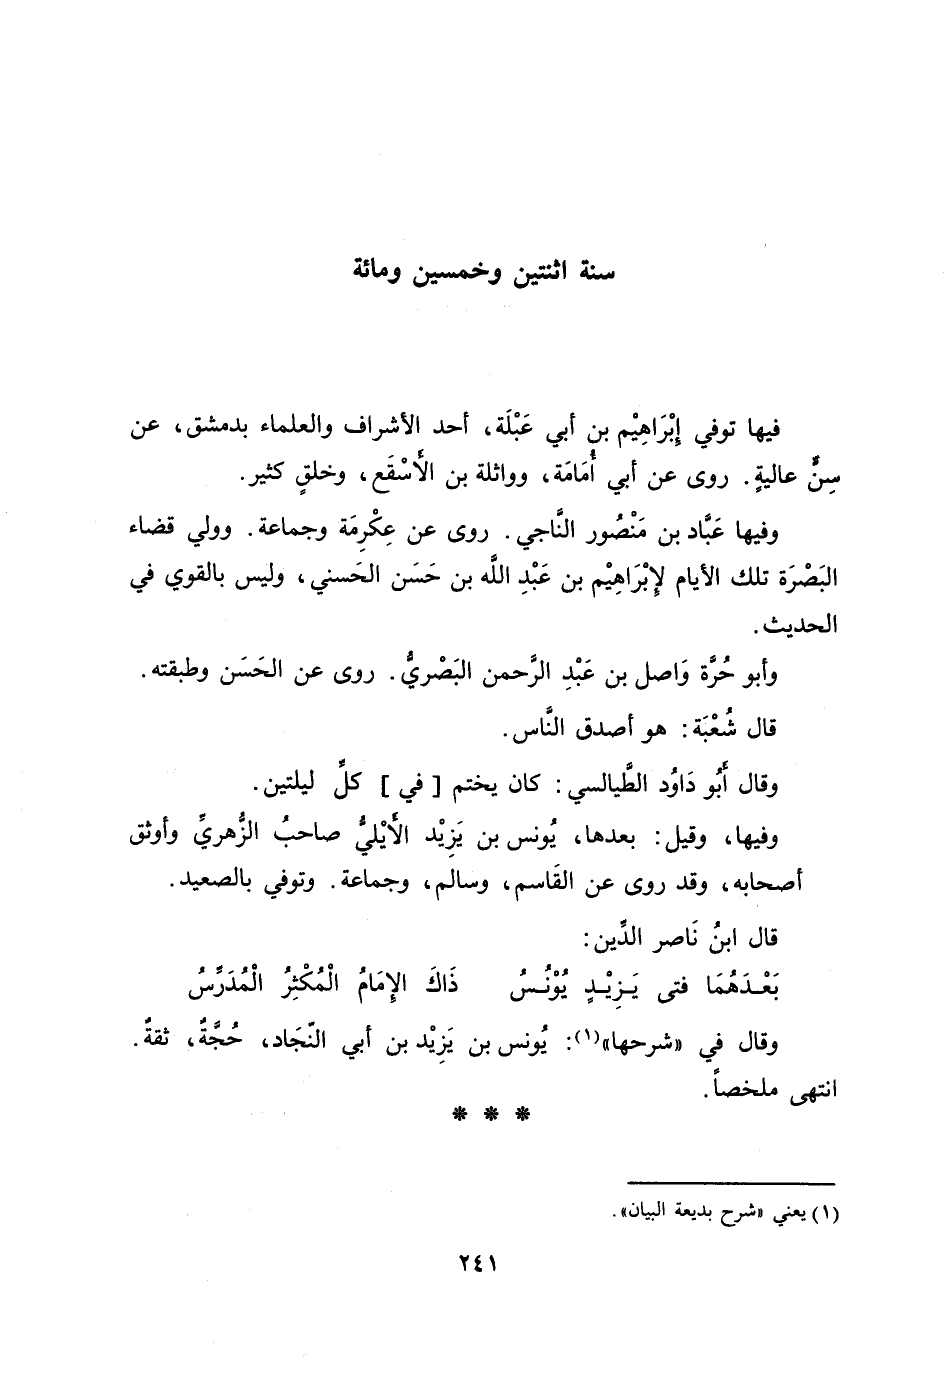 سنة اثنتين وخمسين ومائة
فيها توفي إِبْرَاهِيْم بن أبي عَبْلَة، أحد الأشراف والعلماء بدمشق، عن
سِنٍّ عاليةٍ. روى عن أبي أُمَامَة، وواثلة بن الأَسْقَع، وخلقٍ كثير.
وفيها عَبَّاد بن مَنْصُور النَّاجي. روى عن عِكْرِمَة وجماعة. وولي قضاء
البَصْرَة تلك الأيام لإِبْرَاهِيْم بن عَبْدِ اللَّه بن حَسَن الحَسني، وليس بالقوي في
الحديث.
وأبو حُرَّة وَاصل بن عَبْدِ الرَّحمن البَصْريُّ. روى عن الحَسَن وطبقته.
قال شُعْبَة: هو أصدق النَّاس.
وقال أَبُو دَاوُد الطَّيالسي: كان يختم [في] كلِّ ليلتين.
وفيها، وقيل: بعدها، يُونس بن يَزِيْد الأَيْليُّ صاحبُ الزُّهريِّ وأوثق
أصحابه، وقد روى عن القَاسم، وسالم، وجماعة. وتوفي بالصعيد.
قال ابنُ نَاصر الدِّين:
بَعْـدَهُمَا فتى يَـزِيْـدٍ يُوْنُـسُ ذَاكَ الإِمَامُ الْمُكْثِرُ الْمُدَرِّسُ
وقال في «شرحها»(١): يُونس بن يَزِيْد بن أبي النّجَاد، حُجَّةٌ، ثقةٌ.
انتهى ملخصاً.
* * *
(١) يعني «شرح بديعة البيان».
٢٤١